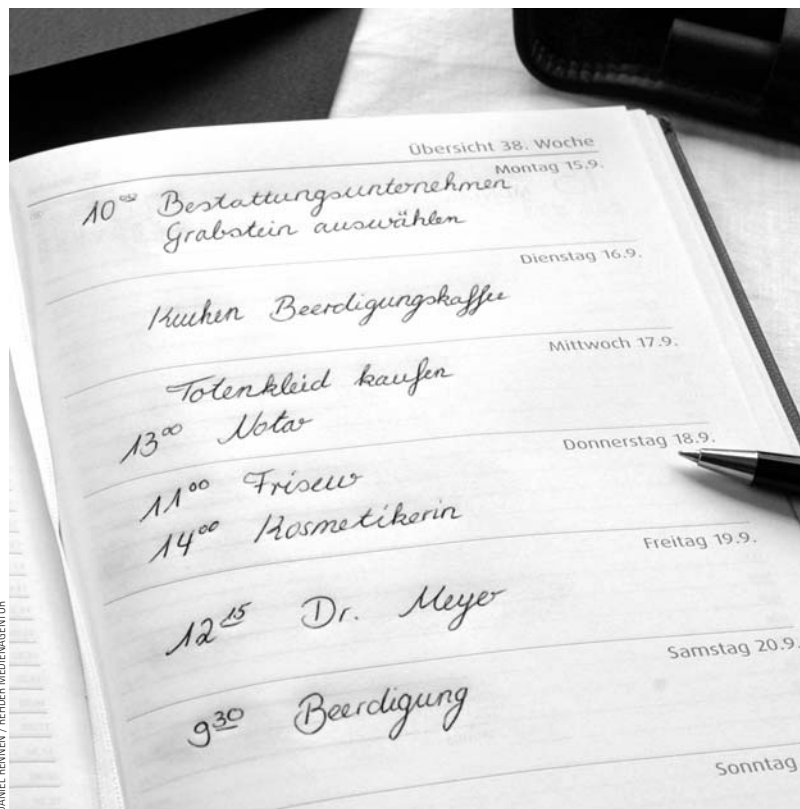 Übersicht 38. Woche
Montag 15.9.
10⁰⁰ Bestattungsunternehmen
Grabstein auswählen
Dienstag 16.9.
Kuchen Beerdigungskaffee
Mittwoch 17.9.
Totenkleid kaufen
13⁰⁰ Notar
Donnerstag 18.9.
11⁰⁰ Friseur
14⁰⁰ Kosmetikerin
Freitag 19.9.
12¹⁵ Dr. Meyer
Samstag 20.9.
9³⁰ Beerdigung
Sonntag
DANIEL RENNEN / REHDER MEDIENAGENTUR